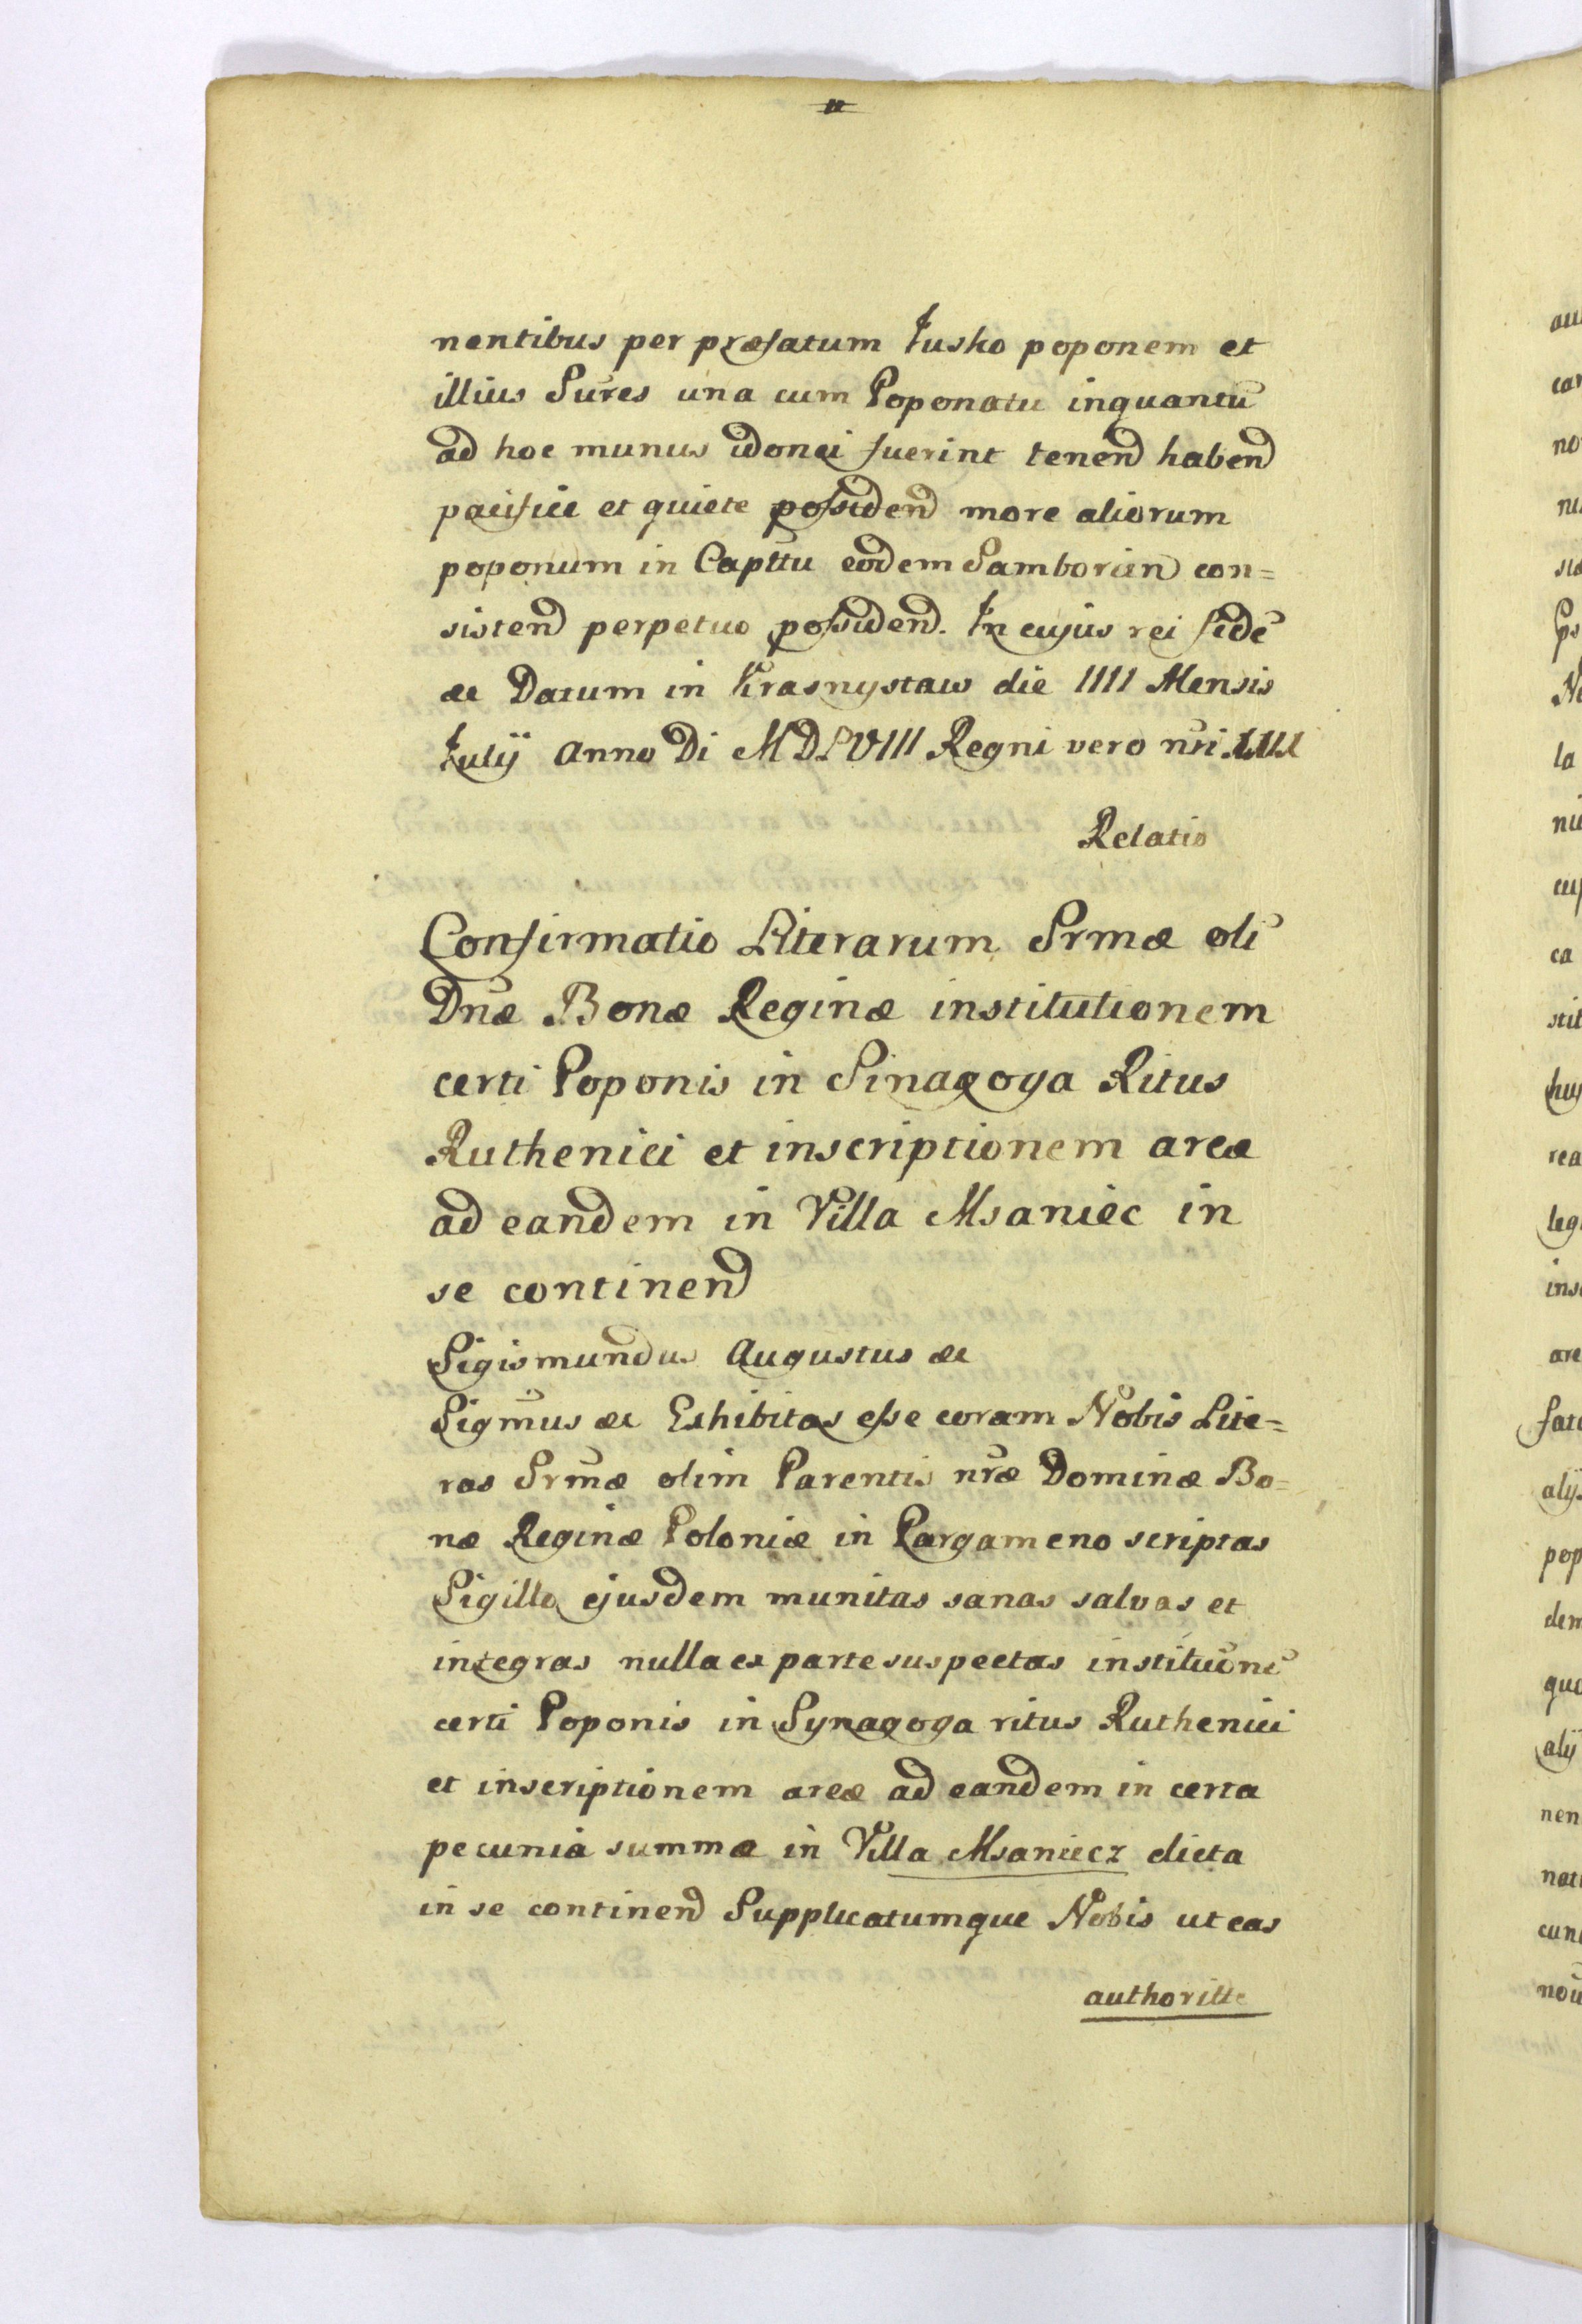 nentibus per præfatum Jusko poponem et
illius Sures una cum Poponatu inquantū
ad hoc munus idonei fuerint tenend habend
pacifice et quiete possidend more aliorum
poponum in Capttu eodem Samborien con=
sistend perpetuo possidend. In cujus rei fidē
&c Datum in Krasnystaw die IIII Mensis
Julij Anno Di MDLVIII Regni vero nr̄i
Relatio
Confirmatio Literarum Srmæ oli̅
Dn̄æ Bonæ Reginæ institutionem
certi Poponis in Sinagoga Ritus
Ruthenici et inscriptionem areæ
ad eandem in Villa Msaniec in
se continend
Sigismundus Augustus &c
Sigm̄us &c Exhibitas esse coram Nobis Lite=
ras Srm̄æ olim Parentis nr̄æ Dominæ Bo=
næ Reginæ Poloniæ in Pargameno scriptas
Sigillo ejusdem munitas sanas salvas et
integras nulla ex parte suspectas institūonē
certi Poponis in Synagoga ritus Ruthenici
et inscriptionem areæ ad eandem in certa
pecunia summæ in Villa Msaniecz dicta
in se continend Supplicatumque Nobis ut eas
authoritte